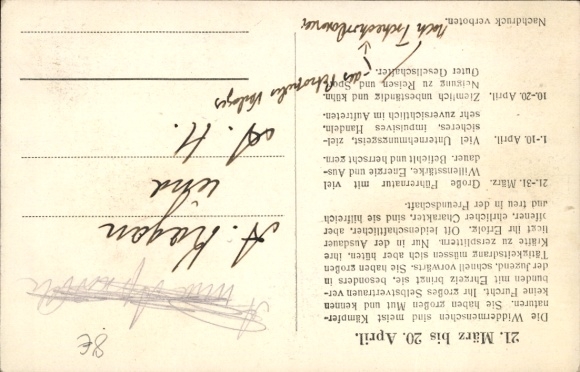 21. März bis 20. April.
Die Widdermenschen sind meist Kämpfer-
naturen. Sie haben großen Mut und kennen
keine Furcht. Ihr großes Selbstvertrauen ver-
bunden mit Ehrgeiz bringt sie, besonders in
der Jugend, schnell vorwärts. Sie haben großen
Tätigkeitsdrang müssen sich aber hüten, ihre
Kräfte zu zersplittern. Nur in der Ausdauer
liegt ihr Erfolg. Oft leidenschaftlicher, aber
offener, ehrlicher Charakter, sind sie hilfreich
und treu in der Freundschaft.
21.-31. März. Große Führernatur mit viel
Willensstärke, Energie und Aus-
dauer. Befiehlt und herrscht gern.
1.-10. April. Viel Unternehmungsgeist, ziel-
sicheres, impulsives Handeln,
sehr zuversichtlich im Auftreten.
10.-20. April. Ziemlich unbeständig und kühn.
Neigung zu Reisen und Sport.
Guter Gesellschafter.
Nachdruck verboten.
8€
A. Kagan
und
A. H.
des Petropolis Verlages
nach Tschechoslowakei